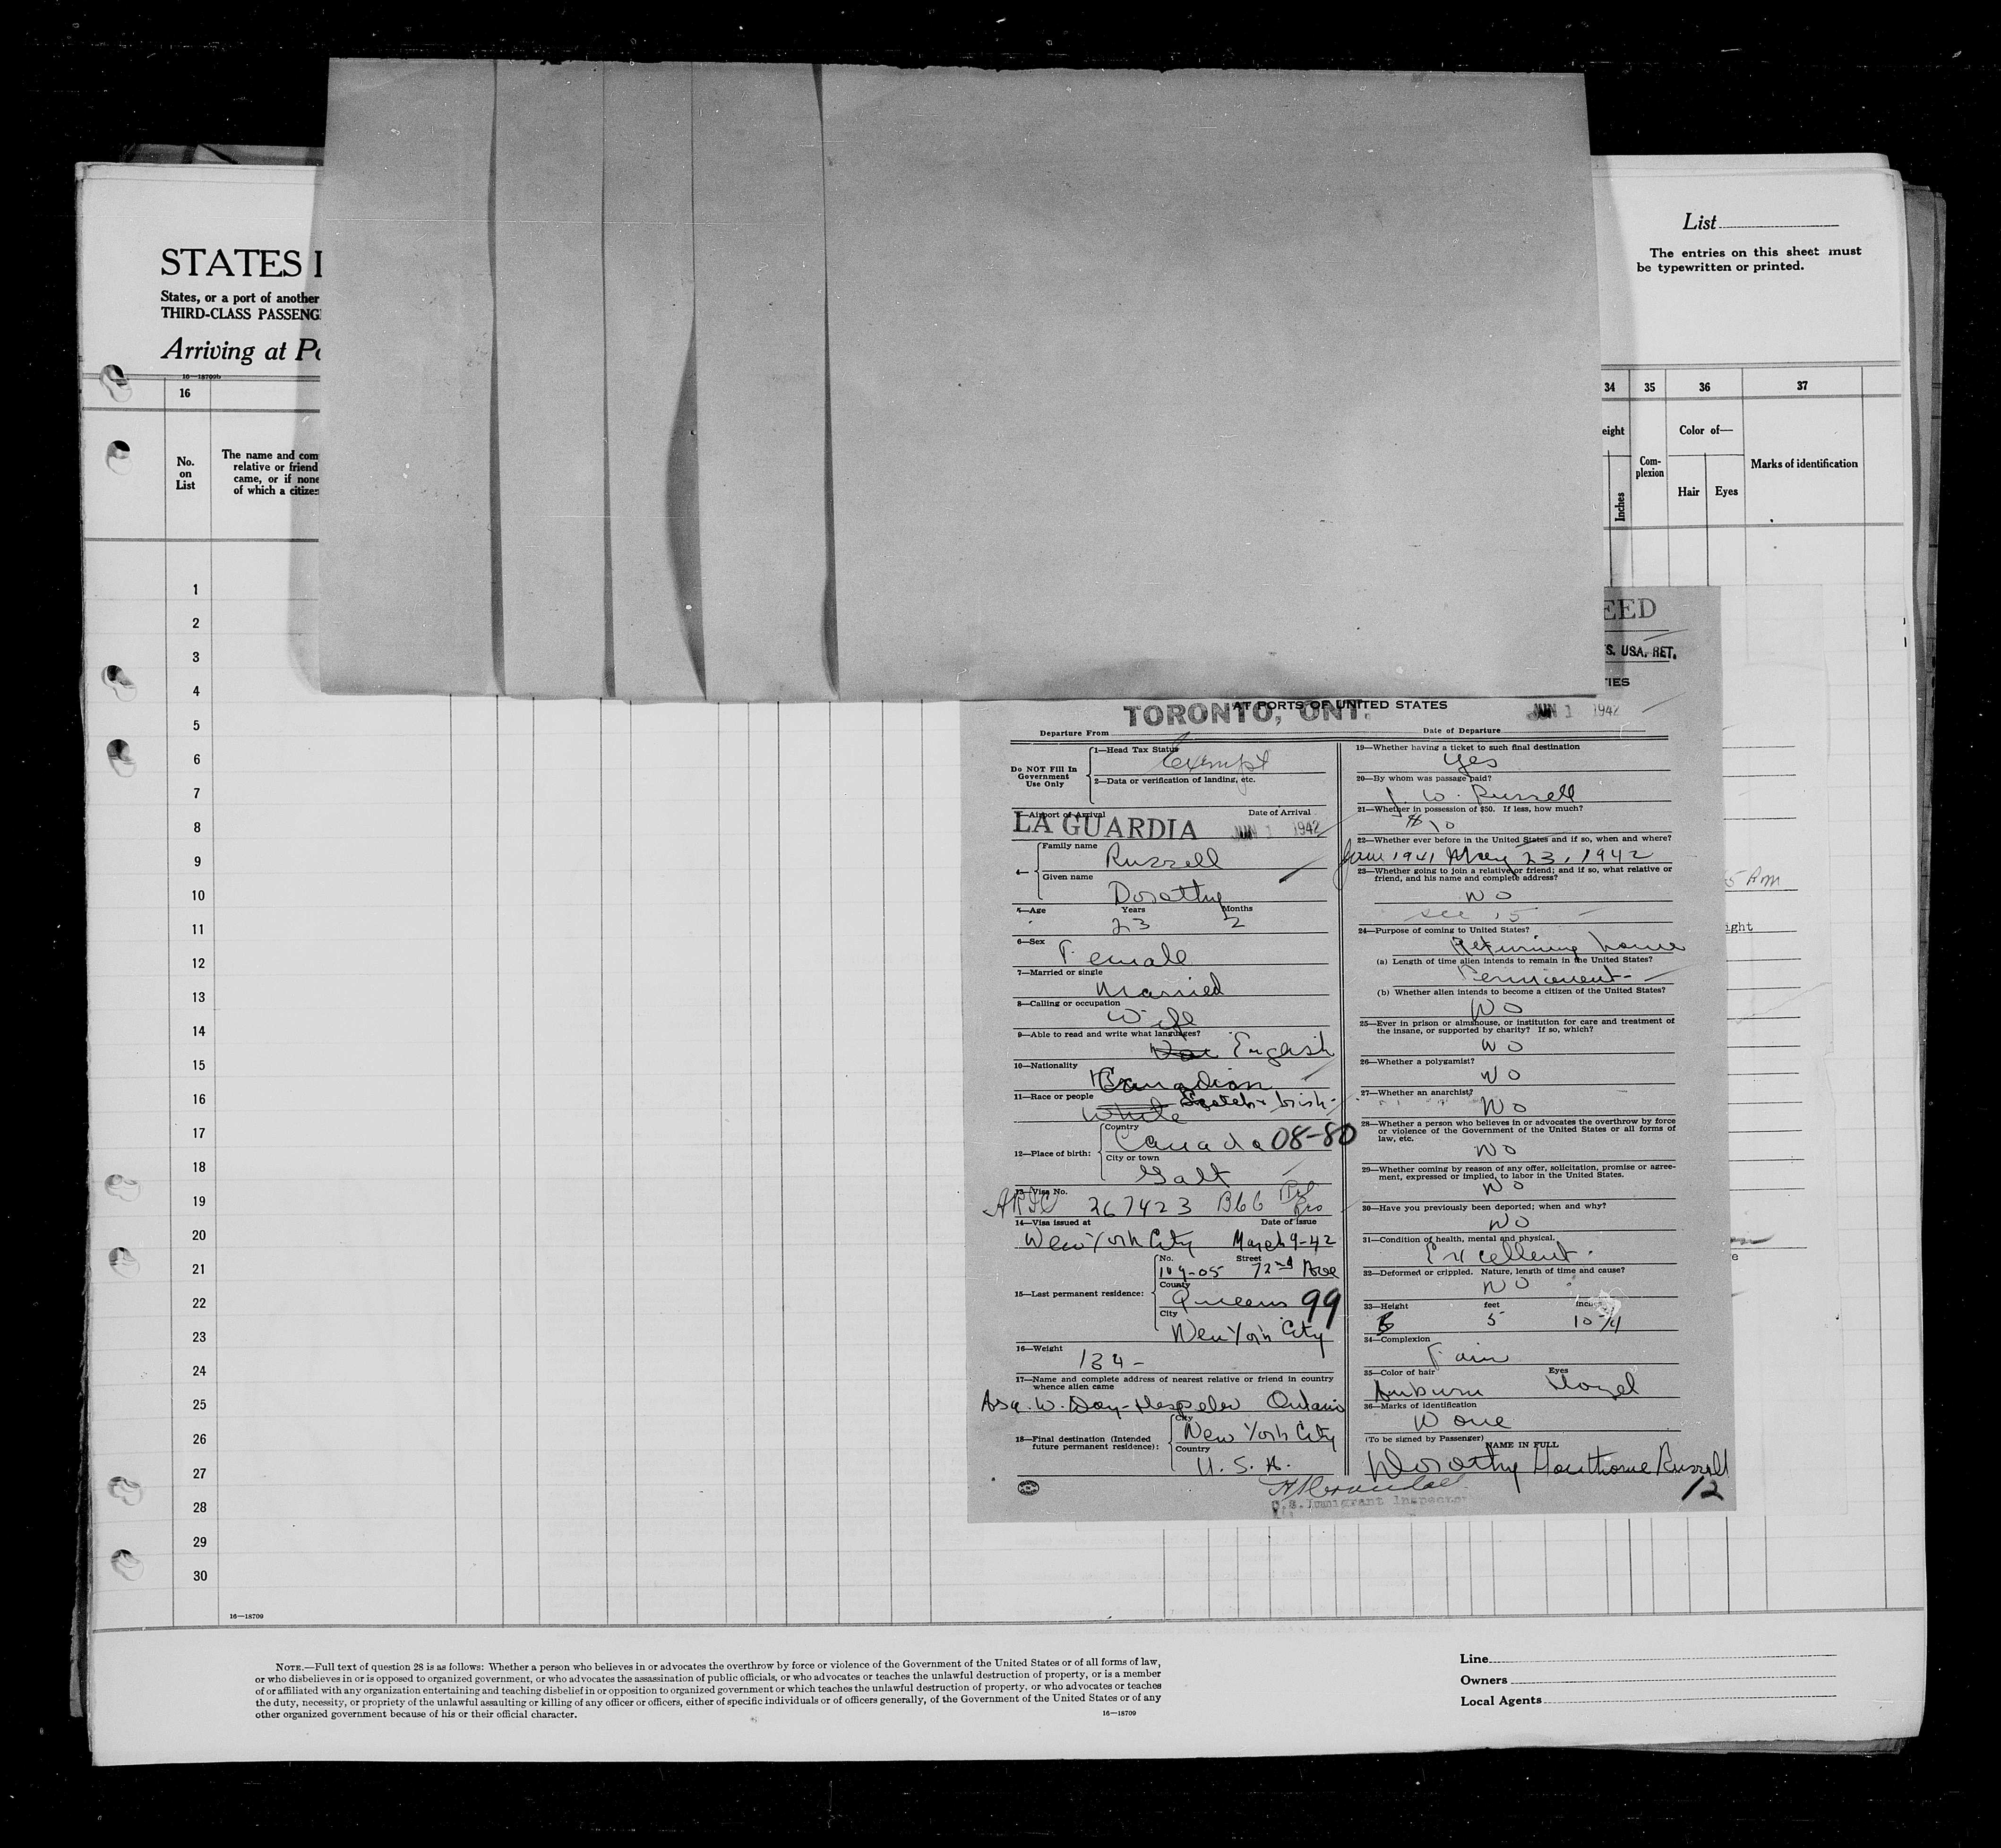 STATES
States, or a port of another
THIRD-CLASS PASSENG
Arriving at
List
The entries on this sheet must
be typewritten or printed.
16—18709b
16
No.
on
List
The name and com
relative or friend
came, or if none
of which a citizen
34 35 36 37
eight
Inches
Com-
plexion
Color of—
Hair Eyes
Marks of identification
1
2
3
4
5
6
7
8
9
10
11
12
13
14
15
16
17
18
19
20
21
22
23
24
25
26
27
28
29
30
16—18709
EED
S. USA. RET.
TIES
AT PORTS OF UNITED STATES
TORONTO, ONT. JUN 1 1942
Departure From Date of Departure
Do NOT Fill In
Government
Use Only
1—Head Tax Status
Exempt
2—Data or verification of landing, etc.
3—Airport of Arrival Date of Arrival
LA GUARDIA JUN 1 1942
4—
Family name
Russell
Given name
Dorothy
5—Age Years Months
23 2
6—Sex
Female
7—Married or single
Married
8—Calling or occupation
Wife
9—Able to read and write what languages?
English
10—Nationality
Canadian
11—Race or people
White Scotch & Irish
12—Place of birth:
Country
Canada 08-80
City or town
Galt
13—Visa No.
267423 B66
14—Visa issued at Date of issue
New York City March 9-42
15—Last permanent residence:
No. Street
109-05 72nd Ave
County
Queens 99
City
New York City
16—Weight
134-
17—Name and complete address of nearest relative or friend in country
whence alien came
W. Day-Hespeler Ontario
18—Final destination (Intended
future permanent residence):
City
New York City
Country
U. S. A.
U.S. Immigrant Inspector
19—Whether having a ticket to such final destination
Yes
20—By whom was passage paid?
J. W. Russell
21—Whether in possession of $50. If less, how much?
$10
22—Whether ever before in the United States and if so, when and where?
June 1941 May 23, 1942
23—Whether going to join a relative or friend; and if so, what relative or
friend, and his name and complete address?
No
see 15
24—Purpose of coming to United States?
Returning home
(a) Length of time alien intends to remain in the United States?
Permanent-
(b) Whether alien intends to become a citizen of the United States?
No
25—Ever in prison or almshouse, or institution for care and treatment of
the insane, or supported by charity? If so, which?
No
26—Whether a polygamist?
No
27—Whether an anarchist?
No
28—Whether a person who believes in or advocates the overthrow by force
or violence of the Government of the United States or all forms of
law, etc.
No
29—Whether coming by reason of any offer, solicitation, promise or agree-
ment, expressed or implied, to labor in the United States.
No
30—Have you previously been deported; when and why?
No
31—Condition of health, mental and physical.
Excellent.
32—Deformed or crippled. Nature, length of time and cause?
No
33—Height feet inches
5
34—Complexion
Fair
35—Color of hair Eyes
Auburn Hazel
36—Marks of identification
None
(To be signed by Passenger)
NAME IN FULL
Dorothy Hawthorne Russell
12
ight
NOTE.—Full text of question 28 is as follows: Whether a person who believes in or advocates the overthrow by force or violence of the Government of the United States or of all forms of law,
or who disbelieves in or is opposed to organized government, or who advocates the assassination of public officials, or who advocates or teaches the unlawful destruction of property, or is a member
of or affiliated with any organization entertaining and teaching disbelief in or opposition to organized government or which teaches the unlawful destruction of property, or who advocates or teaches
the duty, necessity, or propriety of the unlawful assaulting or killing of any officer or officers, either of specific individuals or of officers generally, of the Government of the United States or of any
other organized government because of his or their official character.
16—18709
Line
Owners
Local Agents